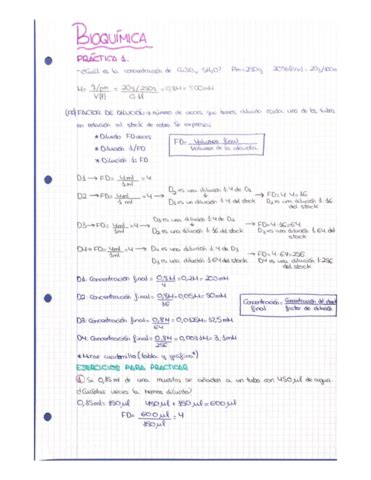 BIOQUÍMICA
PRÁCTICA 1.
-¿Cuál es la concentración de CuSO4 5H2O? Pm=250g 20%(P/V)=20g/100
M= g/pm / V(l) = 20g/250g / 0,1l = 0,8M = 800mM
(FD) FACTOR DE DILUCIÓN: número de veces que hemos diluido cada uno de los tubos
en relación al stock de cobre. Se expresa:
* Diluido FD veces
* Dilución 1/FD
* Dilución 1:FD
FD= Volumen final / Volumen de la alícuota
D1 → FD = 4ml / 1ml = 4
D2 → FD = 4ml / 1ml = 4 → D2 es una dilución 1:4 de D1 → FD=4·4=16
D1 es una dilución 1:4 del stock D2 es una dilución 1:16 del stock
D3 → FD = 4ml / 1ml = 4 → D3 es una dilución 1:4 de D2 → FD=4·16=64
D2 es una dilución 1:16 del stock D3 es una dilución 1:64 del stock
D4 → FD = 4ml / 1ml = 4 → D4 es una dilución 1:4 de D3 → FD=4·64=256
D3 es una dilución 1:64 del stock D4 es una dilución 1:256 del stock
D1: Concentración final = 0,8M / 4 = 0,2M = 200mM
D2: Concentración final = 0,8M / 16 = 0,05M = 50mM
Concentración final = Concentración del stock / factor de dilución
D3: Concentración final = 0,8M / 64 = 0,0125M = 12,5mM
D4: Concentración final = 0,8M / 256 = 0,003M = 3,1mM
*Mirar cuadernillo (tablas y gráficas*)
EJERCICIOS PARA PRACTICAR
1 Si 0,15ml de una muestra se añaden a un tubo con 450µl de agua.
¿Cuántas veces la hemos diluido?
0,15ml = 150µl 450µl + 150µl = 600µl
FD = 600µl / 150µl = 4